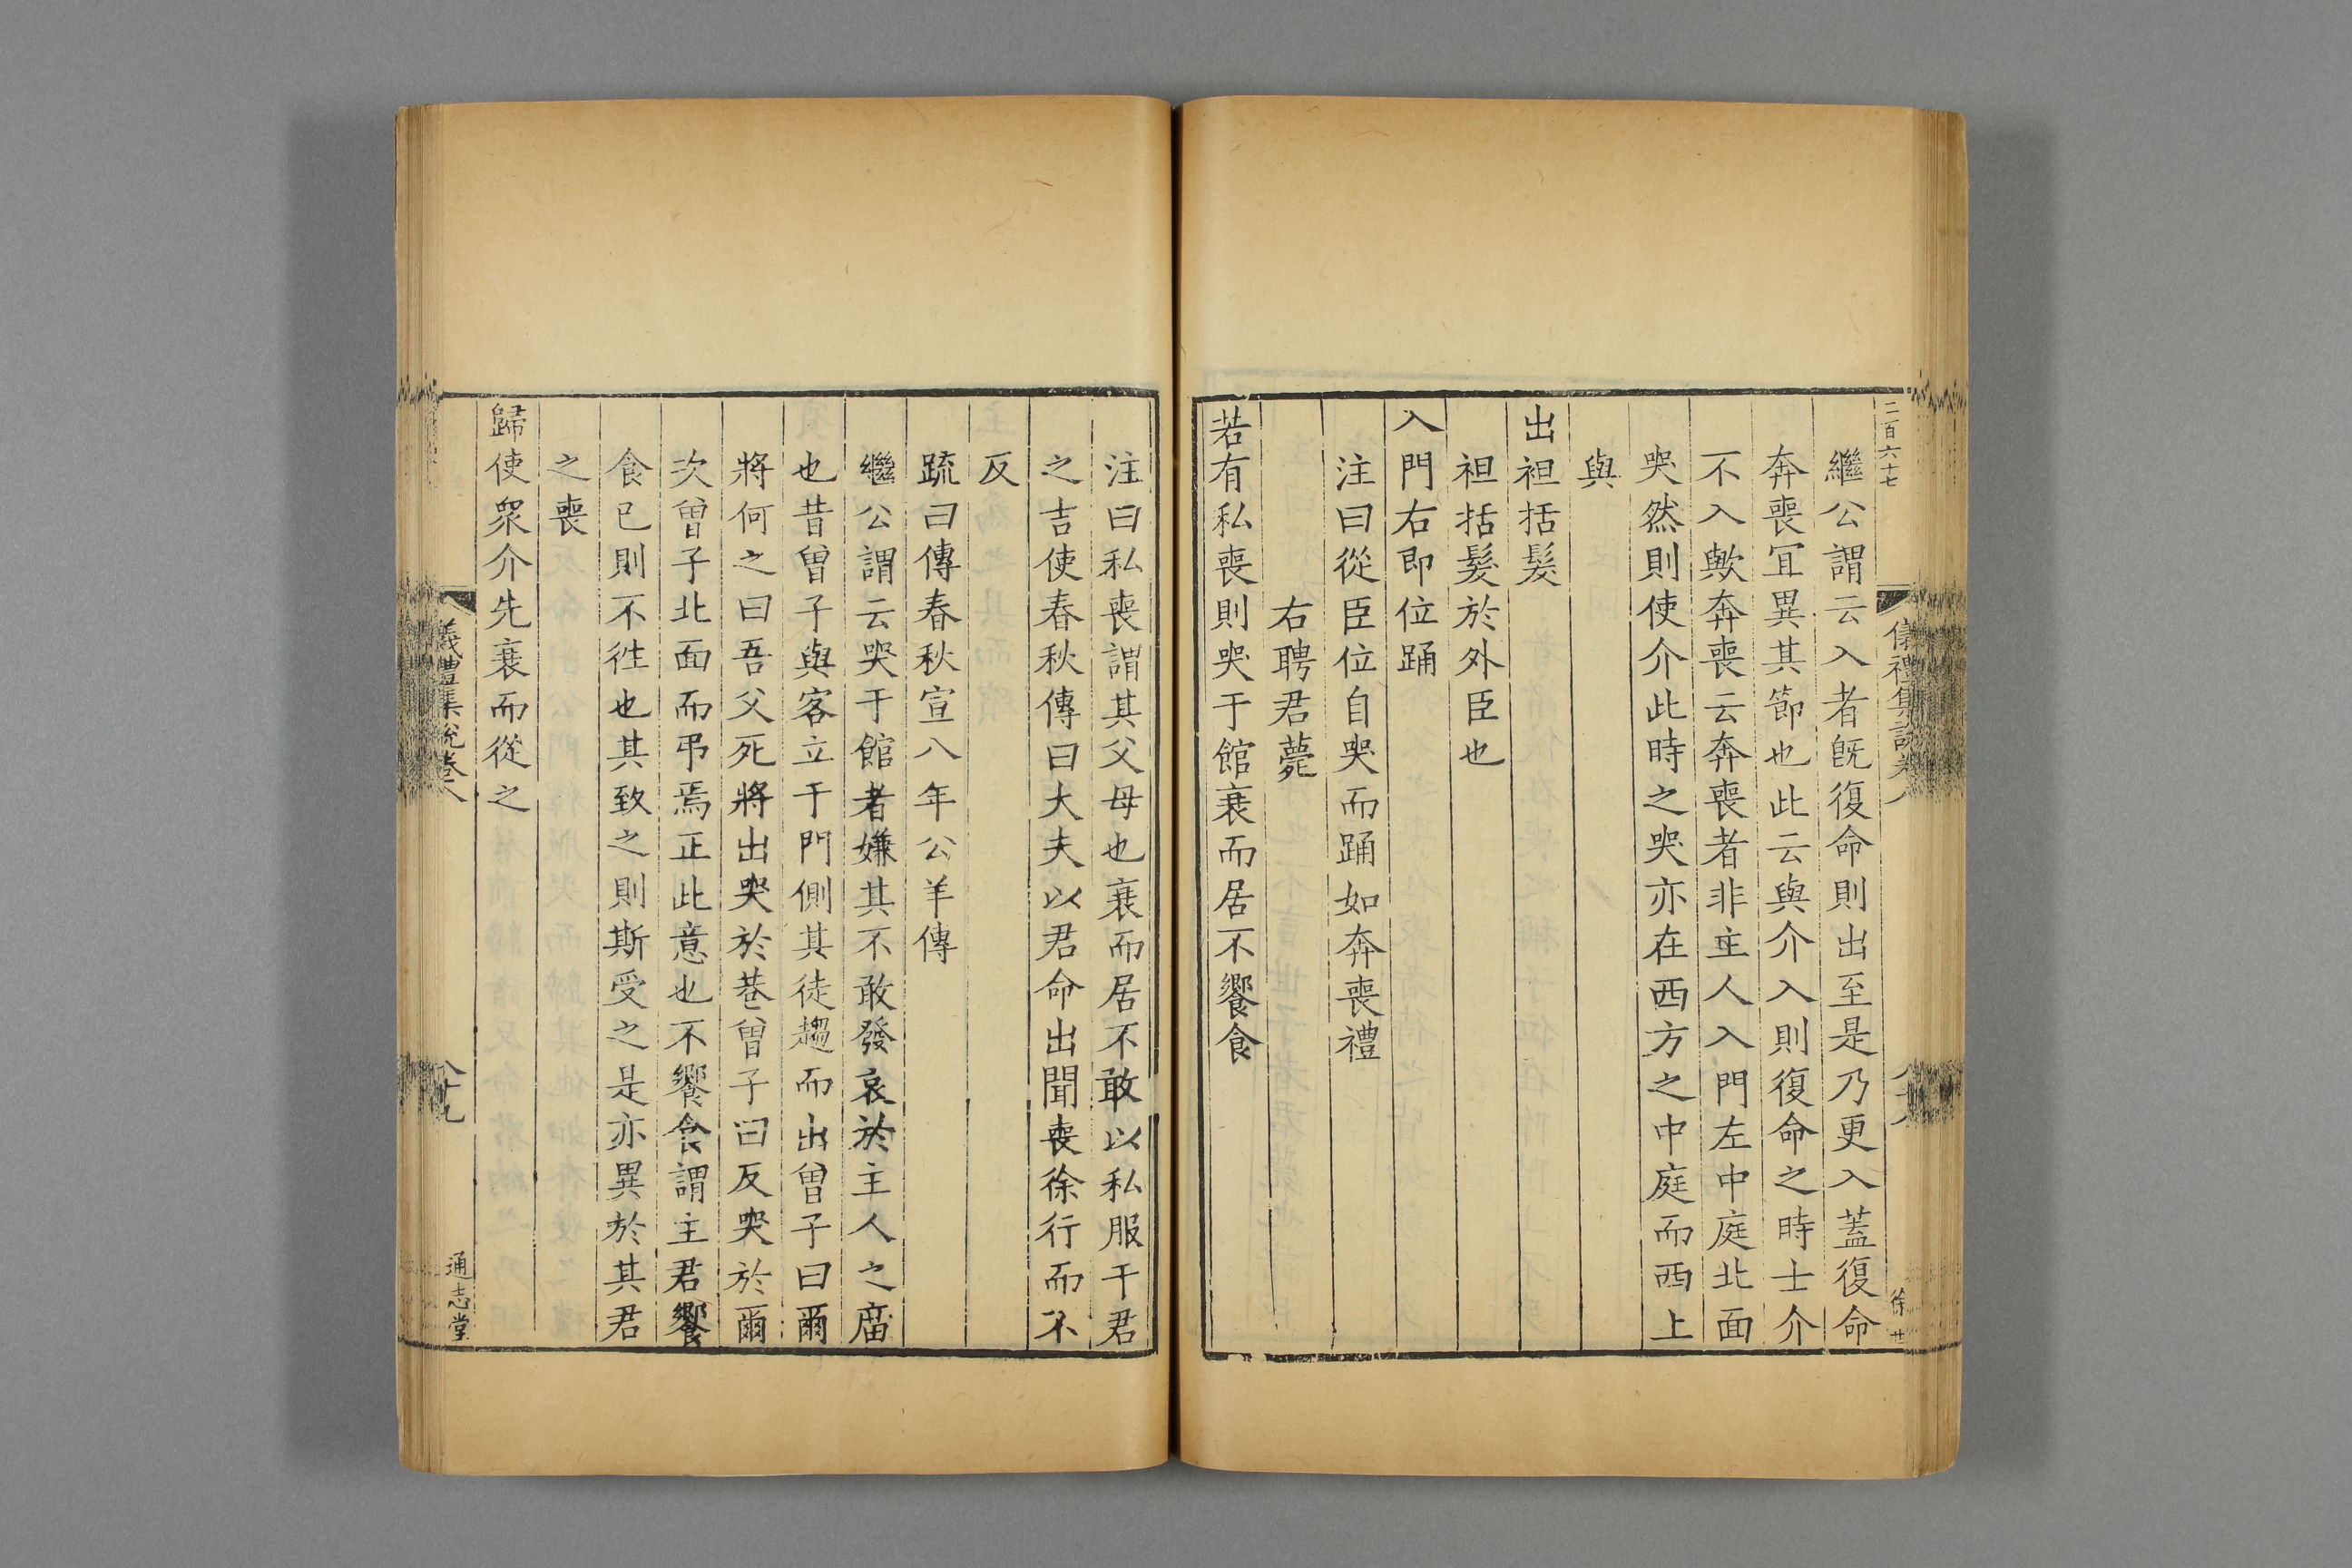 二百六十七
繼公謂云入者旣復命則出至是乃更入蓋復命
奔喪冝異其節也此云與介入則復命之時士介
不入歟奔喪云奔喪者非主人入門左中庭北面
哭然則使介此時之哭亦在西方之中庭而西上
與
出袒括髮
袒括髮於外臣也
入門右即位踊
注曰從臣位自哭而踊如奔喪禮
右聘君薨
若有私喪則哭于館衰而居不饗食
注曰私喪謂其父母也衰而居不敢以私服干君
之吉使春秋傳曰大夫以君命出聞喪徐行而不
反
疏曰傳春秋宣八年公羊傳
繼公謂云哭于館者嫌其不敢發哀於主人之廟
也昔曾子與客立于門側其徒趨而出曾子曰爾
將何之曰吾父死將出哭於巷曾子曰反哭於爾
次曾子北面而弔焉正此意也不饗食謂主君饗
食已則不往也其致之則斯受之是亦異於其君
之喪
歸使衆介先衰而從之
儀禮集說卷八
八十九
通志堂